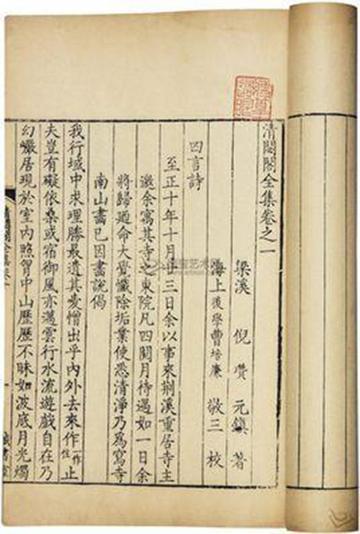 清閟閣全集卷之一
梁溪 倪瓚元鎮 著
海上後學曹培廉 敬三 校
四言詩
至正十年十月廿三日余以事來荆溪重居寺主
邀余寓其寺之東院凡四閱月待遇如一日余
將歸迺命大覺懺除垢業使悉清淨乃爲寫寺
南山畫已因畫說偈
我行域中求理勝最遺其愛憎出乎內外去來作止
夫豈有礙依桑或宿御風亦邁雲行水流遊戲自在乃
幻巘居現於室內照胷中山歷歷不昧如波底月光燭